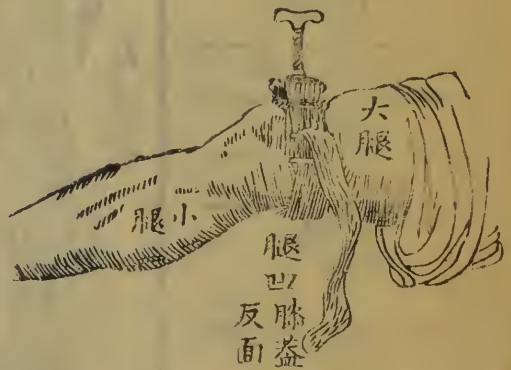 大腿
小腿
腿凹膝蓋
反面